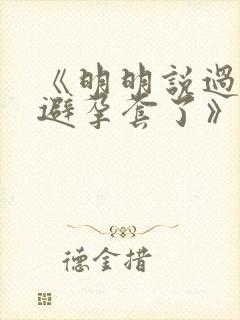 《明明説過
避孕套了》
德金措